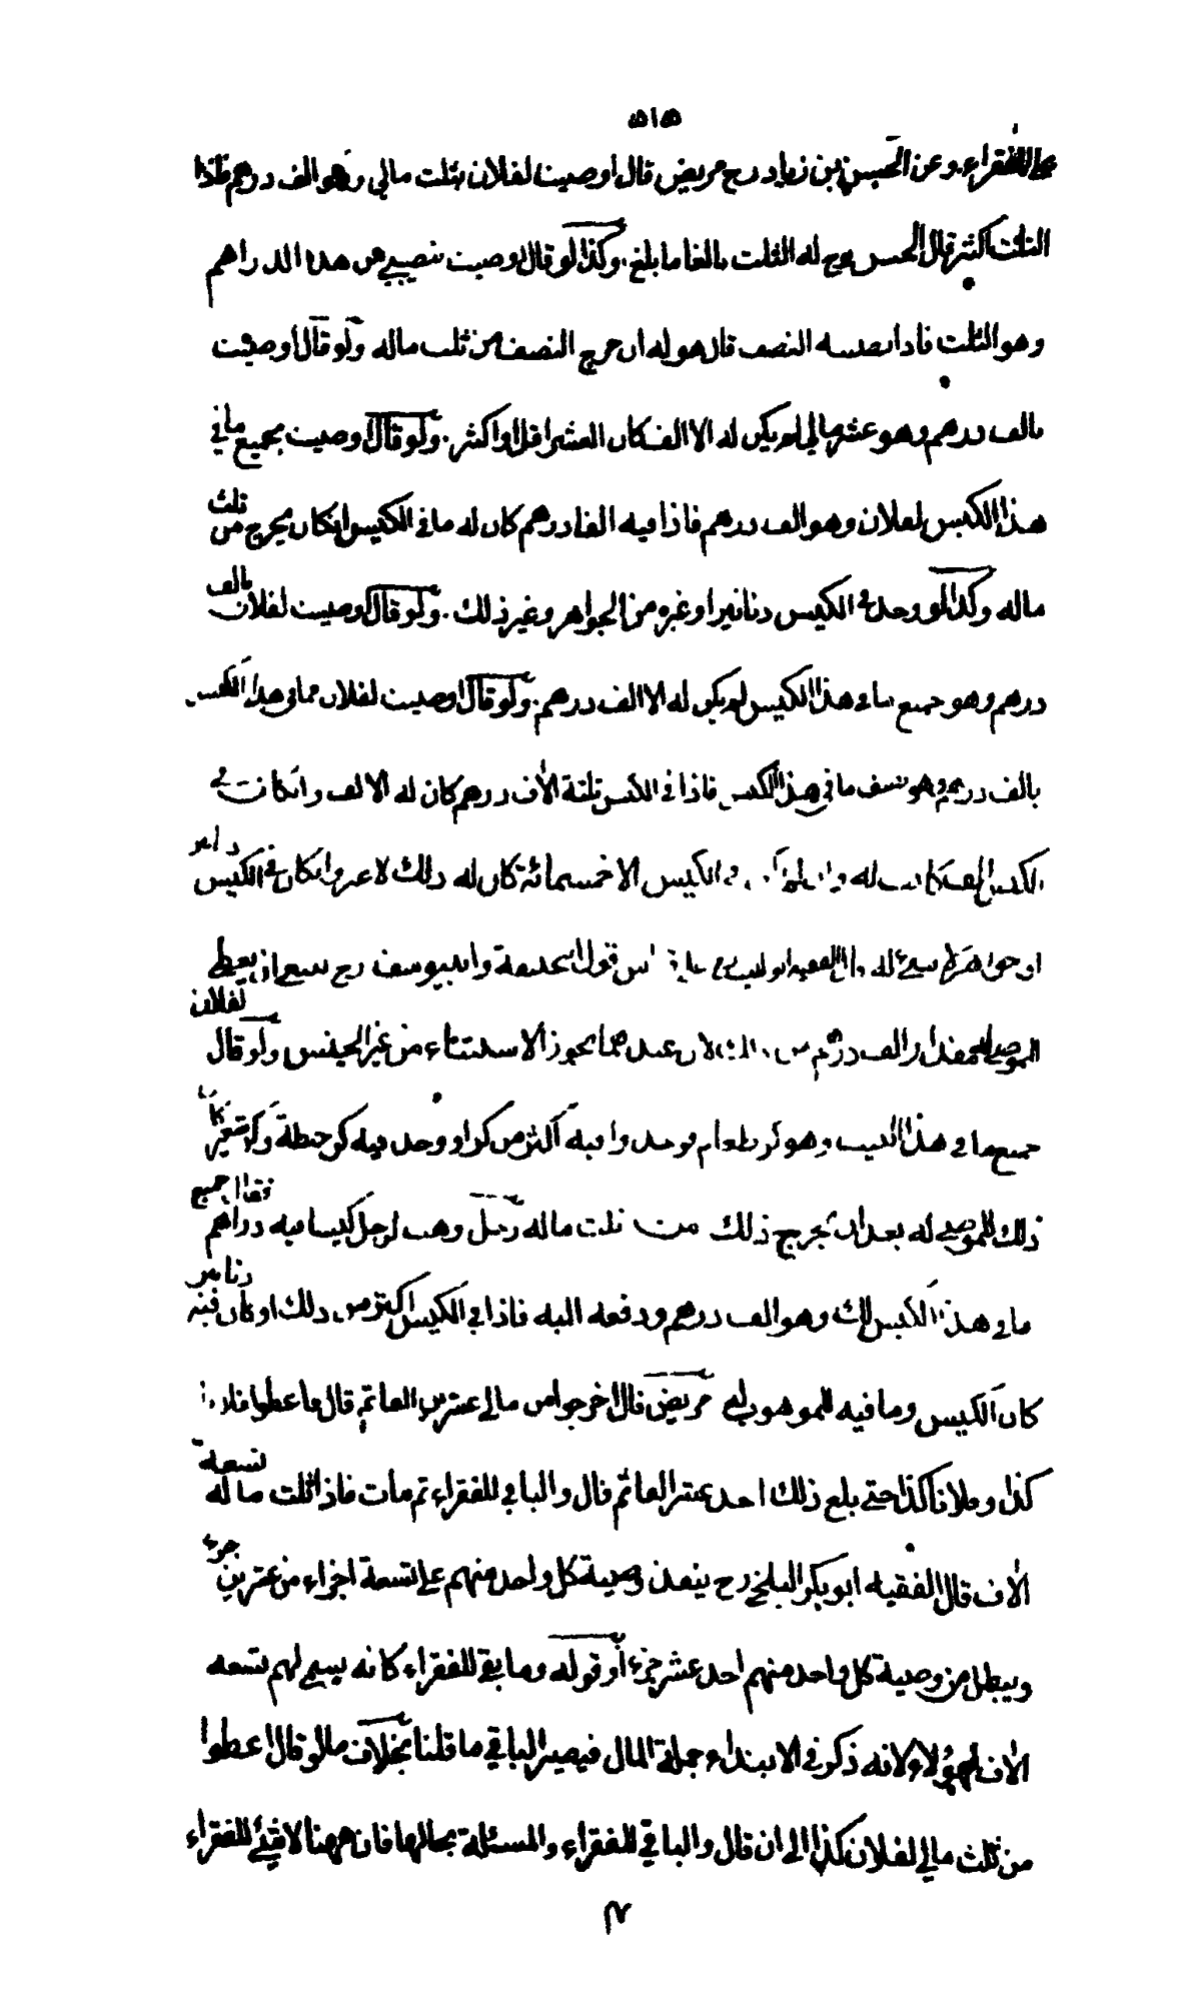 ٥١٥
على الفقراء وعن الحسن بن زياد رح مريض قال اوصيت لفلان بثلت مالي وهو الف درهم فاذا
الثلت اكثر قال الحسن رح له الثلت بالغا ما بلغ وكذا لو قال اوصيت بنصيبي من هذا الدراهم
وهو الثلت فاذا نصيبه النصف قال هو له ان خرج النصف من ثلث ماله ولو قال اوصيت
بالف درهم وهو عشر مالي لم يكن له الا الف كان العشر اقل او اكثر ولو قال اوصيت بجميع ما في
هذا الكيس لفلان وهو الف درهم فاذا فيه الفا درهم كان له ما في الكيس ان كان يخرج من ثلث
ماله وكذا لو وجد في الكيس دنانير او غيره من الجواهر وغير ذلك ولو قال اوصيت لفلان بالف
درهم وهو جميع ما في هذا الكيس لم يكن له الا الف درهم ولو قال اوصيت لفلان مما في هذا الكيس
بالف درهم وهو نصف ما في هذا الكيس فاذا في الكيس ثلثة الاف درهم كان له الالف وان كانت في
الكيس الف كانت له وان لم في الكيس الا خمسمائة كان له ذلك لا غير وان كان في الكيس دنانير
او جواهر لا شيء له قال الفقيه ابو الليث رح قياس قول ابي حنيفة وابي يوسف رح ينبغي ان يعطى
الموصى له مقدار الف درهم من لان عندهما يجوز الاستثناء من غير الجنس ولو قال لفلان
جميع ما في هذا البيت وهو كر طعام فوجد فيه اكثر من كر او وجد فيه كر حنطة وكر شعير كان
ذلك للموصى له بعد ان يخرج ذلك من ثلث ماله رجل وهب لرجل كيسا فيه دراهم فقال جميع
ما في هذا الكيس لك وهو الف درهم ودفعه اليه فاذا في الكيس اكثر من ذلك او كان فيه دنانير
كان الكيس وما فيه للموهوب له مريض قال اخرجوا من مالي عشرين الفا ثم قال فاعطوا فلانا
كذا وفلانا كذا حتى بلغ ذلك احد عشر الفا ثم قال والباقي للفقراء ثم مات فاذا ثلث ماله تسعة
الاف قال الفقيه ابو بكر البلخي رح ينفذ وصية كل واحد منهم على تسعة اجزاء من عشرين جزء
ويبطل من وصية كل واحد منهم احد عشر جزء او قوله وما بقي للفقراء كانه يسمى لهم تسعه
الاف لهؤلاء ولانه ذكر في الابتداء جملة المال فيصير الباقي ما قلنا بخلاف ما لو قال اعطوا
من ثلث مالي لفلان كذا الى ان قال والباقي للفقراء والمسئلة بحالها فان ههنا لا شيء للفقراء